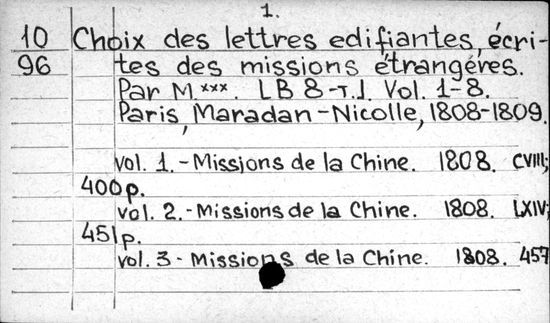 1.
10 Choix des lettres edifiantes, écri-
96 tes des missions étrangéres.
Par M.***. LB 8-т.]. Vol. 1-8.
Paris, Maradan-Nicolle, 1808-1809.
vol. 1.-Missions de la Chine. 1808. CVIII;
400p.
vol. 2.-Missions de la Chine. 1808. LXIV;
451p.
vol. 3-Missions de la Chine. 1808. 457